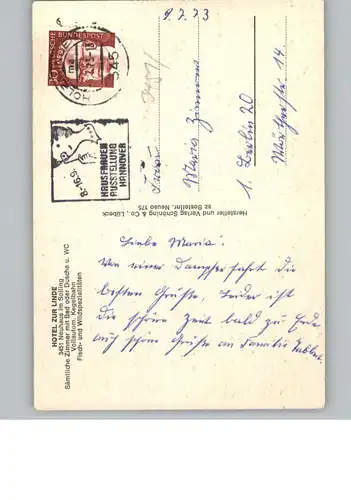 9.7.73
DEUTSCHE
BUNDESPOST
345
HAUSFRAUEN
AUSSTELLUNG
HANNOVER
8.-16.9.
Frau
Maria
1. Berlin 20
14
Hersteller und Verlag Schöning & Co., Lübeck
sz Bestellnr. Neuso 175
Liebe Maria!
Von einer Dampferfahrt die
besten Grüße. Leider ist
die schöne Zeit bald zu Ende.
auch schöne Grüße an Familie
HOTEL ZUR LINDE
3451 Neuhaus im Solling
Sämtliche Zimmer mit Bad oder Dusche u. WC
Vollautom. Kegelbahn
Fisch- und Wildspezialitäten